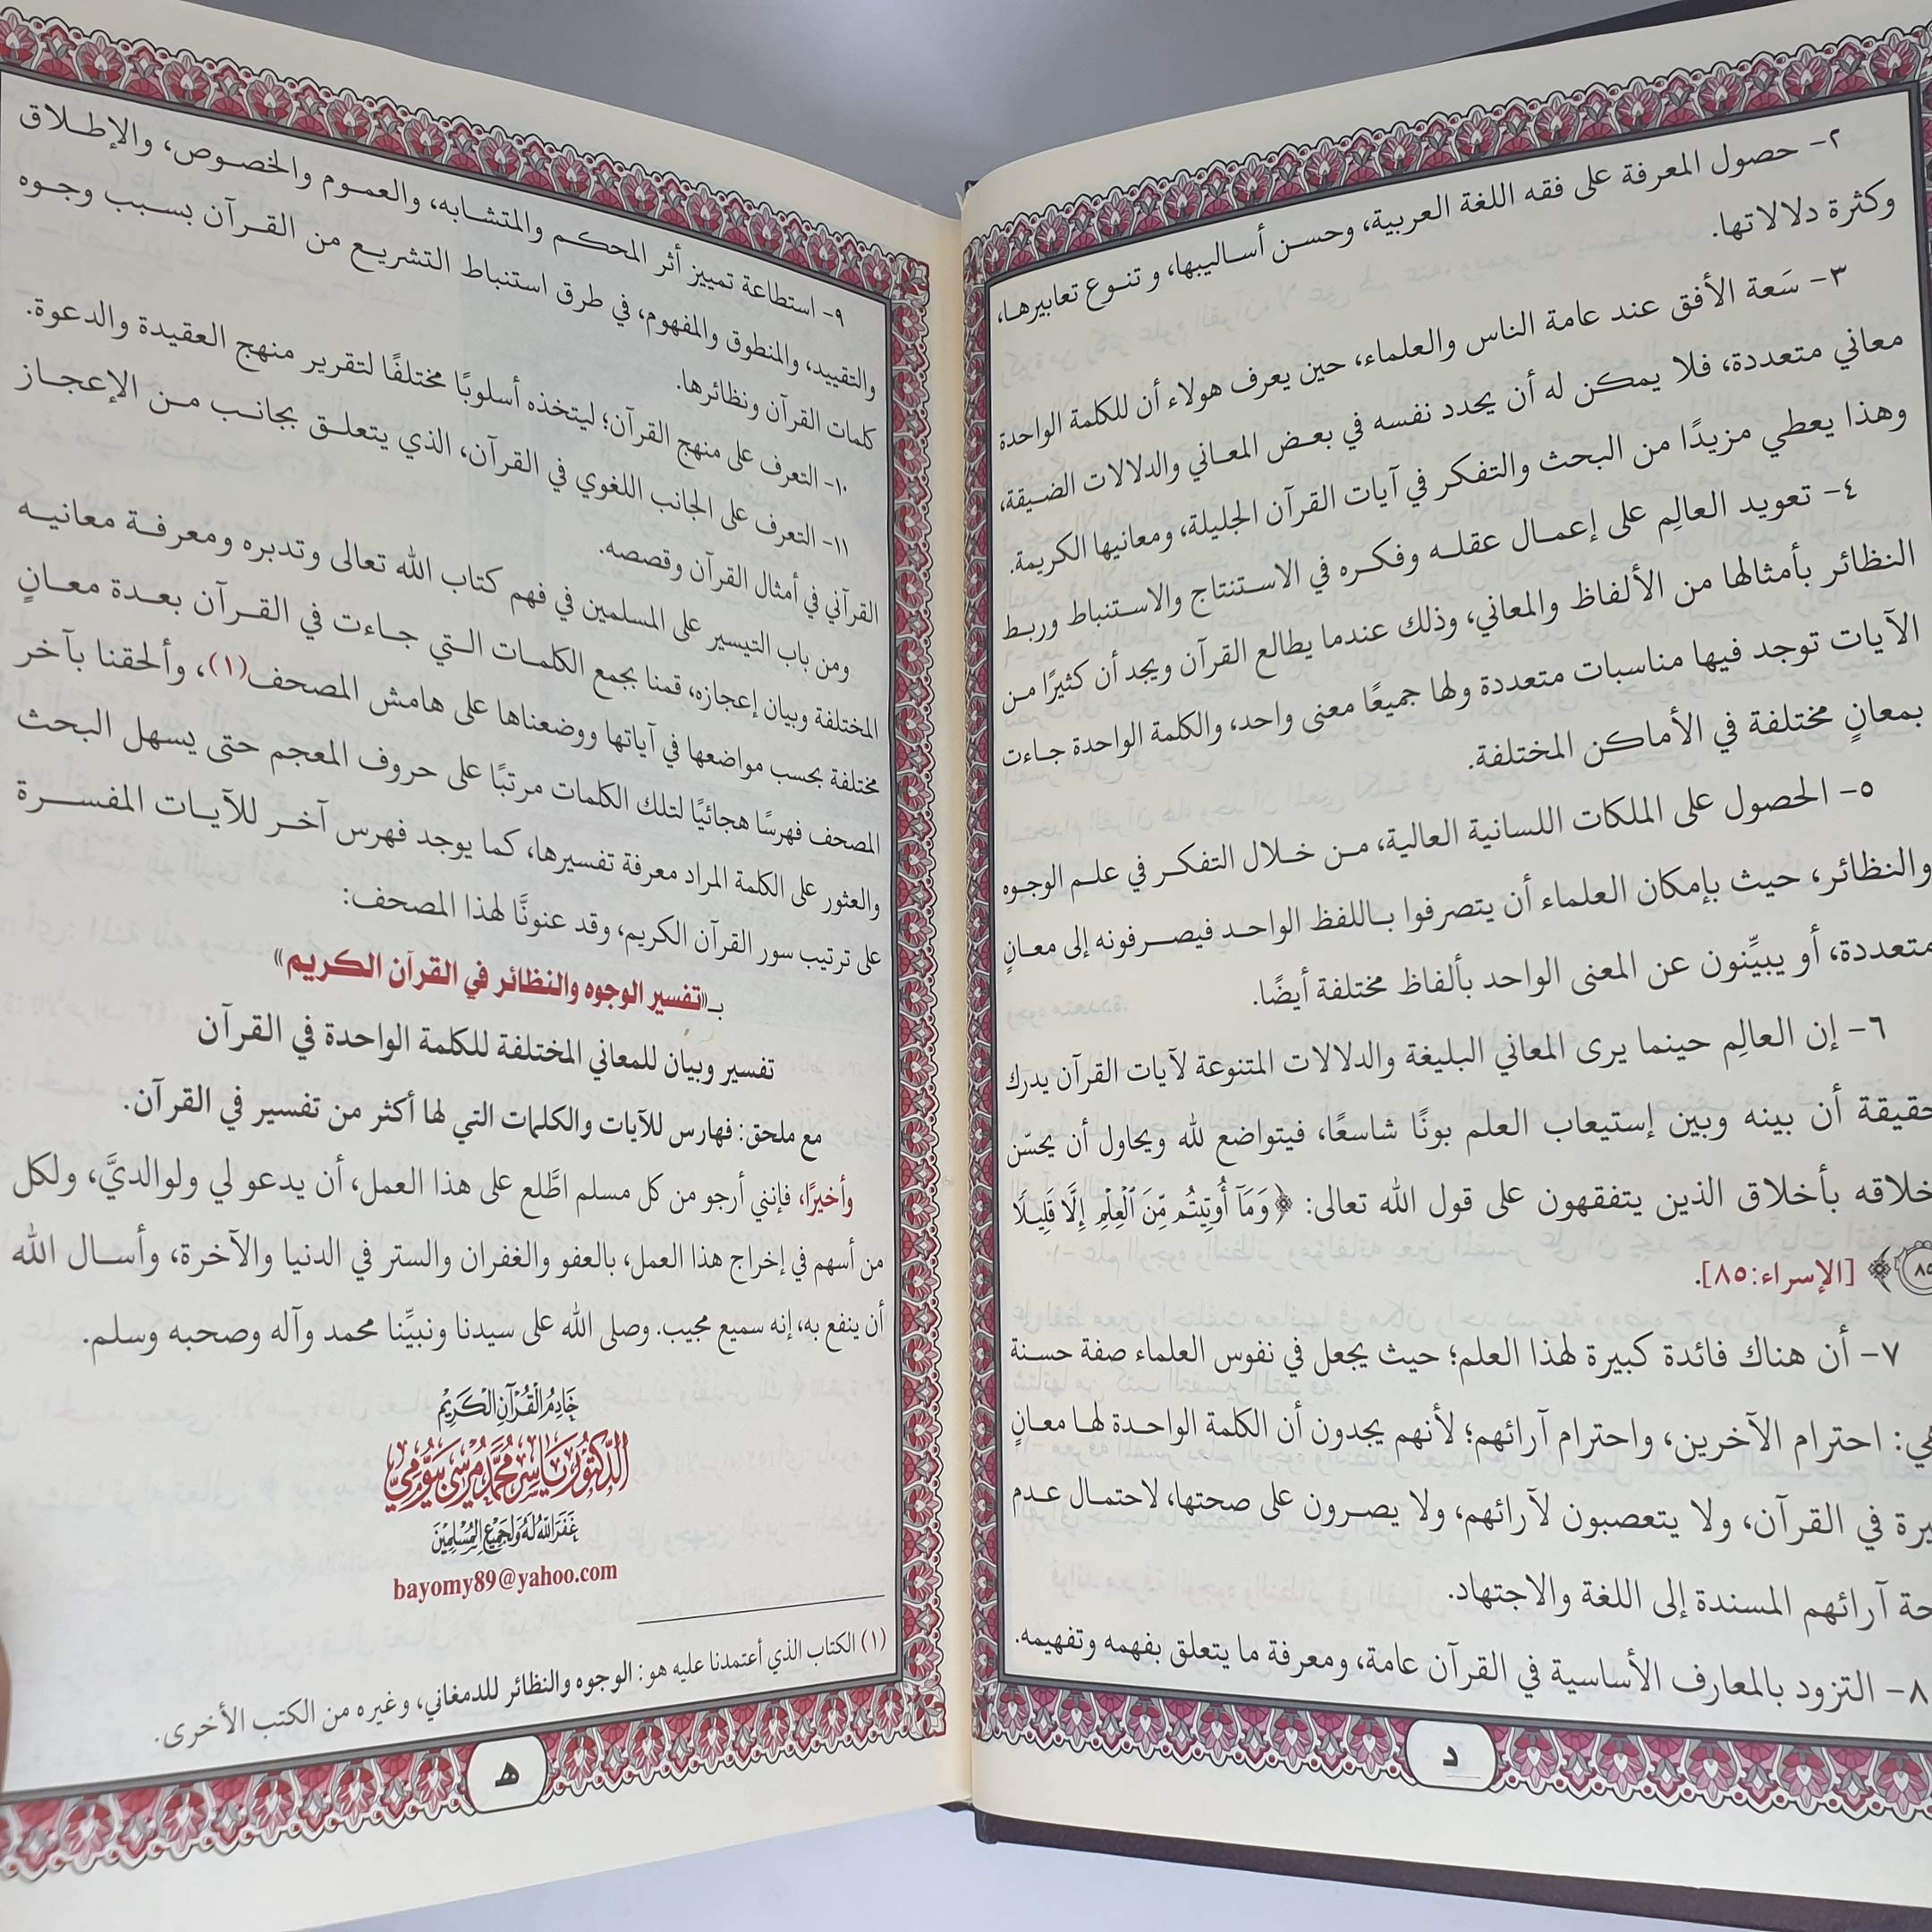 ٢- حصول المعرفة على فقه اللغة العربية، وحسن أساليبها، و تنوع تعابيرها،
وكثرة دلالاتها.
٣- سَعة الأفق عند عامة الناس والعلماء، حين يعرف هولاء أن للكلمة الواحدة
معاني متعددة، فلا يمكن له أن يحدد نفسه في بعض المعاني والدلالات الضيقة،
وهذا يعطي مزيدًا من البحث والتفكر في آيات القرآن الجليلة، ومعانيها الكريمة.
٤- تعويد العالِم على إعمال عقله وفكره في الاستنتاج والاستنباط وربط
النظائر بأمثالها من الألفاظ والمعاني، وذلك عندما يطالع القرآن ويجد أن كثيرًا من
الآيات توجد فيها مناسبات متعددة ولها جميعًا معنى واحد، والكلمة الواحدة جاءت
بمعانٍ مختلفة في الأماكن المختلفة.
٥- الحصول على الملكات اللسانية العالية، من خلال التفكر في علم الوجوه
والنظائر، حيث بإمكان العلماء أن يتصرفوا باللفظ الواحد فيصرفونه إلى معانٍ
متعددة، أو يبيِّنون عن المعنى الواحد بألفاظ مختلفة أيضًا.
٦- إن العالِم حينما يرى المعاني البليغة والدلالات المتنوعة لآيات القرآن يدرك
حقيقة أن بينه وبين إستيعاب العلم بونًا شاسعًا، فيتواضع لله ويحاول أن يحسّن
خلاقه بأخلاق الذين يتفقهون على قول الله تعالى: ﴿وَمَآ أُوتِيتُم مِّنَ ٱلۡعِلۡمِ إِلَّا قَلِيلٗا
٨٥﴾ [الإسراء:٨٥].
٧- أن هناك فائدة كبيرة لهذا العلم؛ حيث يجعل في نفوس العلماء صفة حسنة
هي: احترام الآخرين، واحترام آرائهم؛ لأنهم يجدون أن الكلمة الواحدة لها معانٍ
يرة في القرآن، ولا يتعصبون لآرائهم، ولا يصرون على صحتها، لاحتمال عدم
حة آرائهم المسندة إلى اللغة والاجتهاد.
٨- التزود بالمعارف الأساسية في القرآن عامة، ومعرفة ما يتعلق بفهمه وتفهيمه.
د
٩- استطاعة تمييز أثر المحكم والمتشابه، والعموم والخصوص، والإطلاق
والتقييد، والمنطوق والمفهوم، في طرق استنباط التشريع من القرآن بسبب وجوه
كلمات القرآن ونظائرها.
١٠- التعرف على منهج القرآن؛ ليتخذه أسلوبًا مختلفًا لتقرير منهج العقيدة والدعوة.
١١- التعرف على الجانب اللغوي في القرآن، الذي يتعلق بجانب من الإعجاز
القرآني في أمثال القرآن وقصصه.
ومن باب التيسير على المسلمين في فهم كتاب الله تعالى وتدبره ومعرفة معانيه
المختلفة وبيان إعجازه، قمنا بجمع الكلمات التي جاءت في القرآن بعدة معانٍ
مختلفة بحسب مواضعها في آياتها ووضعناها على هامش المصحف(١)، وألحقنا بآخر
المصحف فهرسًا هجائيًا لتلك الكلمات مرتبًا على حروف المعجم حتى يسهل البحث
والعثور على الكلمة المراد معرفة تفسيرها، كما يوجد فهرس آخر للآيات المفسرة
على ترتيب سور القرآن الكريم، وقد عنونَّا لهذا المصحف:
بـ«تفسير الوجوه والنظائر في القرآن الكريم»
تفسير وبيان للمعاني المختلفة للكلمة الواحدة في القرآن
مع ملحق: فهارس للآيات والكلمات التي لها أكثر من تفسير في القرآن.
وأخيرًا، فإنني أرجو من كل مسلم اطَّلع على هذا العمل، أن يدعو لي ولوالديَّ، ولكل
من أسهم في إخراج هذا العمل، بالعفو والغفران والستر في الدنيا والآخرة، وأسال الله
أن ينفع به، إنه سميع مجيب. وصلى الله على سيدنا ونبيِّنا محمد وآله وصحبه وسلم.
خَادِمُ الْقُرْآنِ الْكَرِيْمِ
الدُّكْتُورُ يَاسِر مُحَمَّد مُرْسِي بَيُّومِي
غَفَرَ اللهُ لَهُ وَلِجَمِيْعِ الْمُسْلِمِيْنَ
bayomy89@yahoo.com
(١) الكتاب الذي أعتمدنا عليه هو: الوجوه والنظائر للدمغاني، وغيره من الكتب الأخرى.
هـ